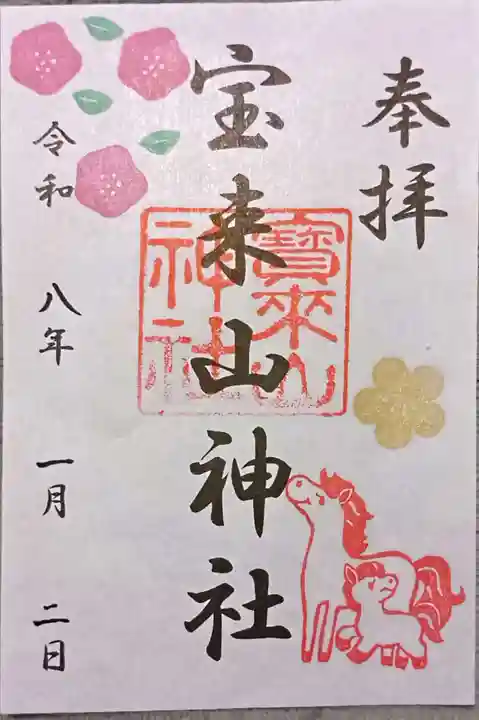 奉拝
宝来山神社
寳來山
神社
令和八年一月二日